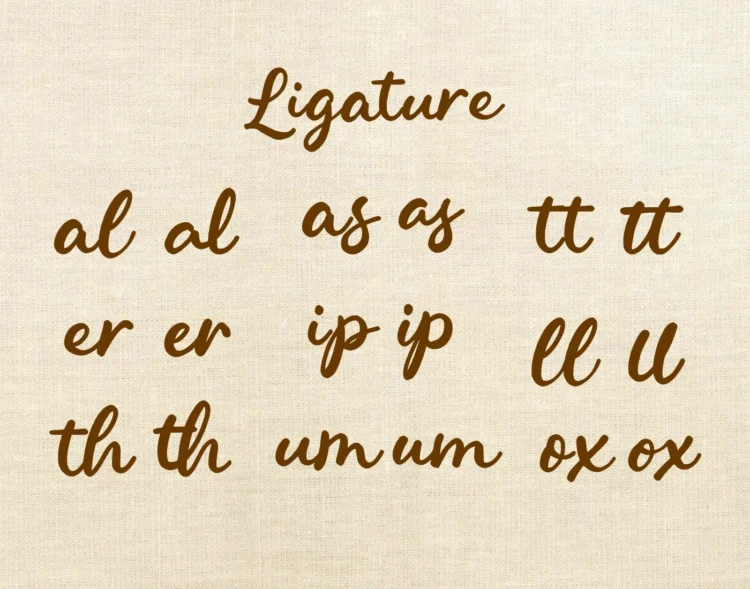 Ligature
al al as as tt tt
er er ip ip ll ll
th th um um ox ox